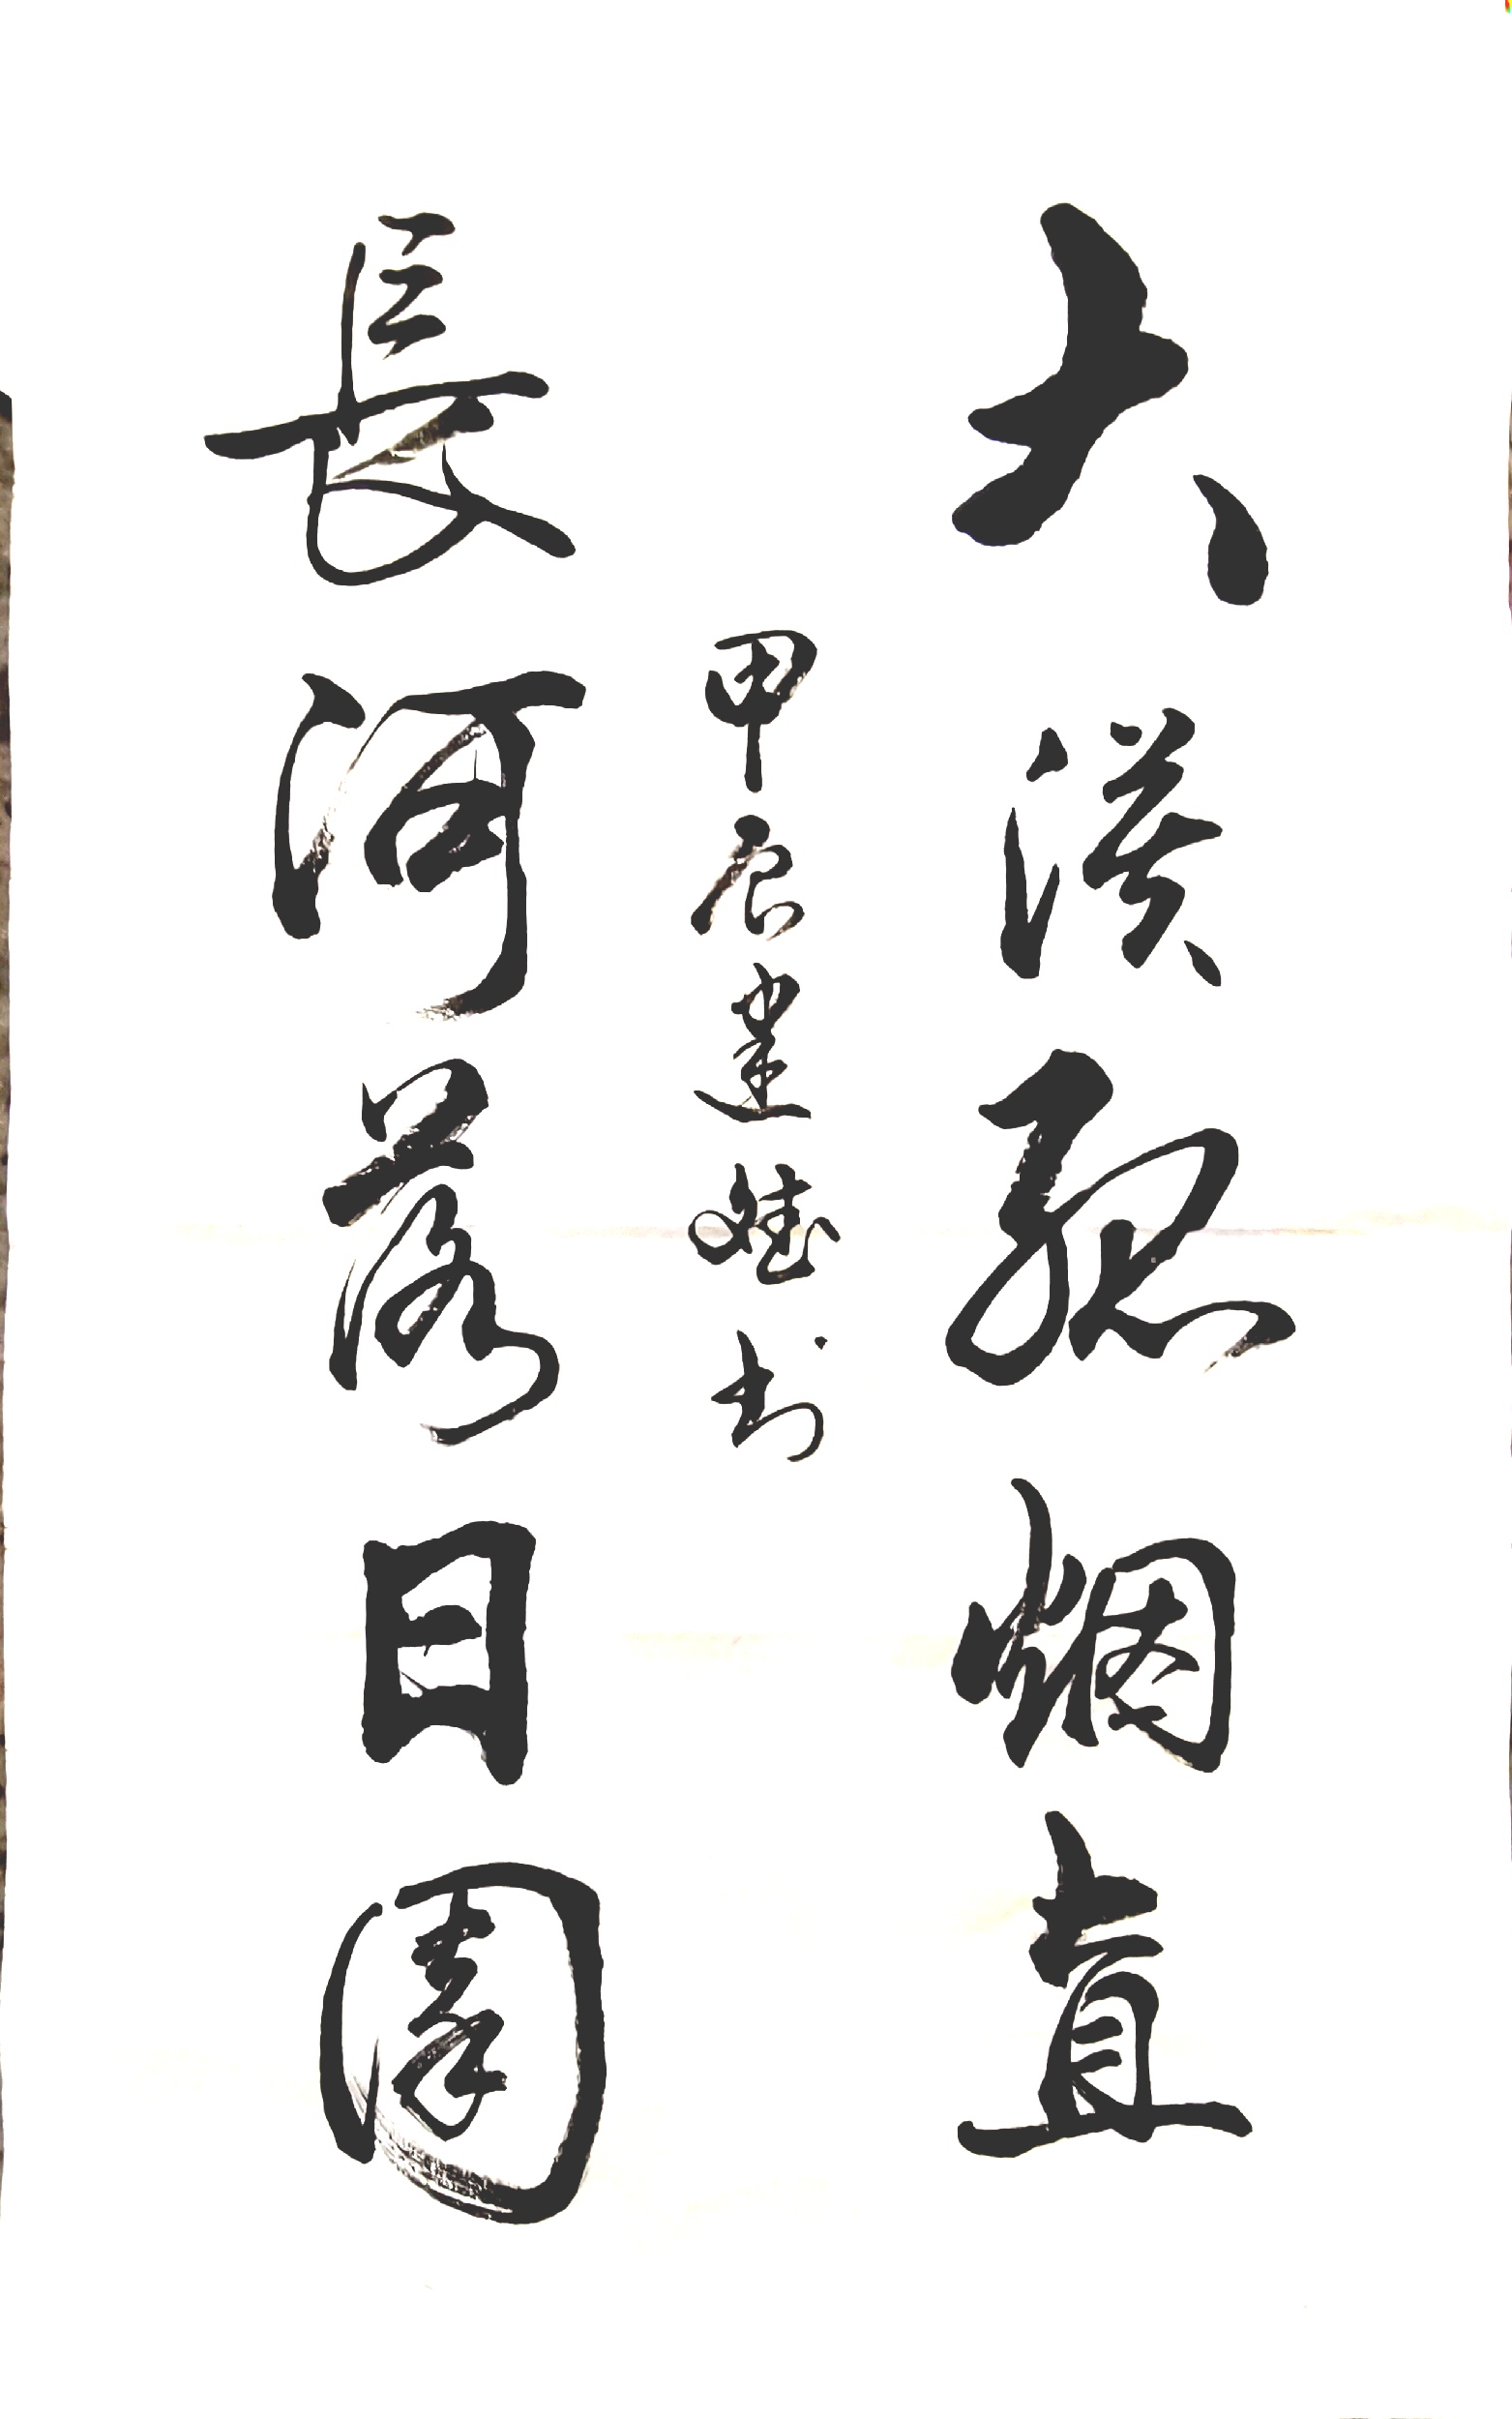 大漠孤烟直
長河落日圓
甲辰建